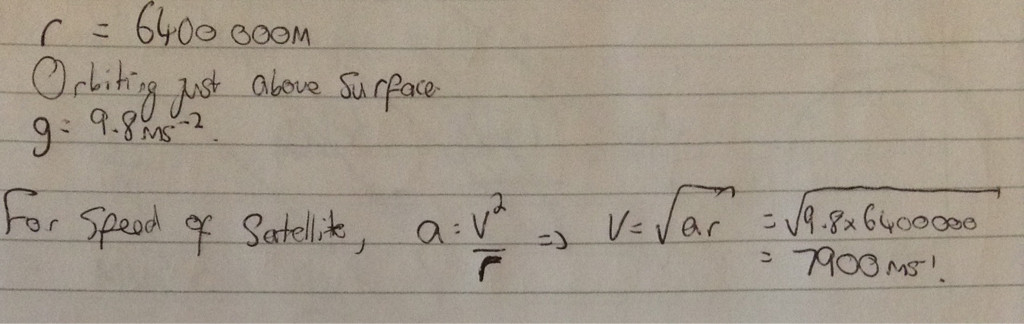 r = 6400 000M
Orbiting just above Surface
g = 9.8 ms⁻².
For Speed of Satellite, a = v²/r => V = √ar = √9.8x6400000
= 7900 ms⁻¹.